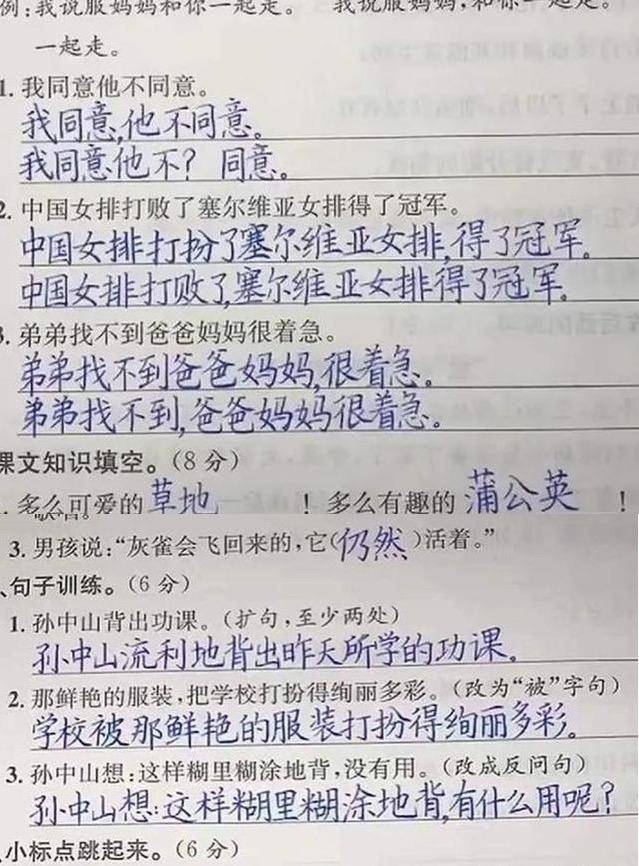 例：我说服妈妈和你一起走。 我说服妈妈，和你一起走。
一起走。
1. 我同意他不同意。
我同意，他不同意。
我同意他不？同意。
2. 中国女排打败了塞尔维亚女排得了冠军。
中国女排打扮了塞尔维亚女排，得了冠军。
中国女排打败了，塞尔维亚女排得了冠军。
3. 弟弟找不到爸爸妈妈很着急。
弟弟找不到爸爸妈妈，很着急。
弟弟找不到，爸爸妈妈很着急。
课文知识填空。（8 分）
. 多么可爱的 草地 ！多么有趣的 蒲公英 ！
3. 男孩说：“灰雀会飞回来的，它（仍然）活着。”
、句子训练。（6 分）
1. 孙中山背出功课。（扩句，至少两处）
孙中山流利地背出昨天所学的功课。
2. 那鲜艳的服装，把学校打扮得绚丽多彩。（改为“被”字句）
学校被那鲜艳的服装打扮得绚丽多彩。
3. 孙中山想：这样糊里糊涂地背，没有用。（改成反问句）
孙中山想：这样糊里糊涂地背，有什么用呢？
、小标点跳起来。（6 分）